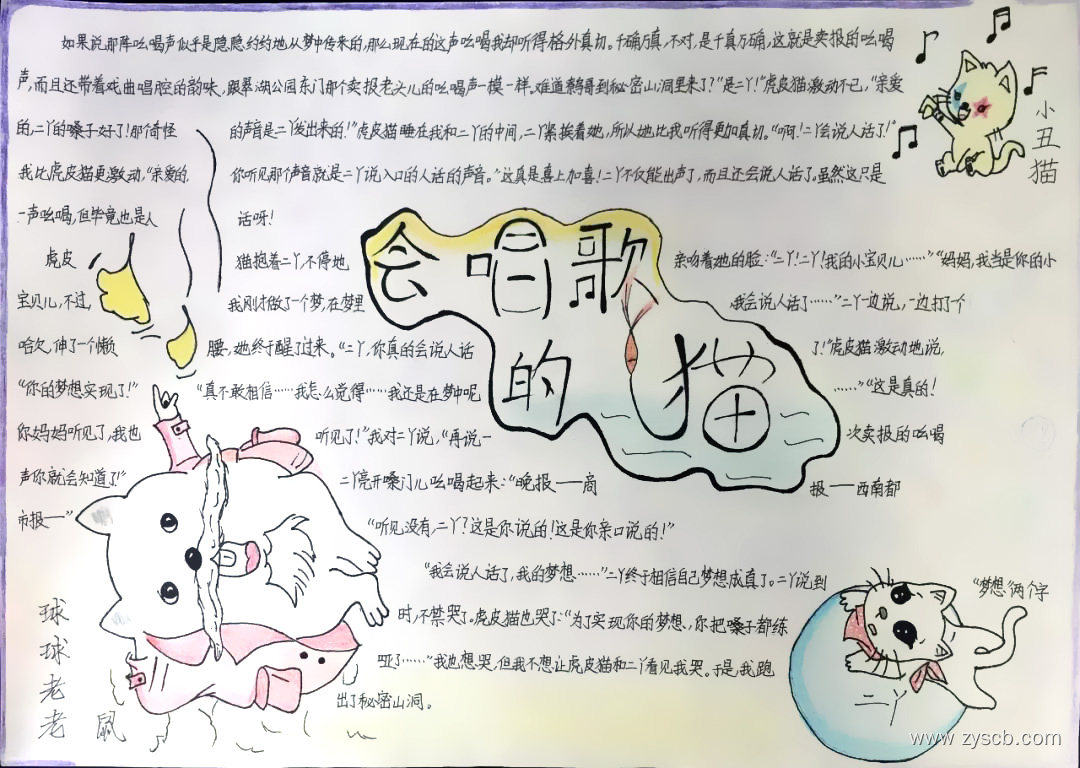 会唱歌的猫
如果说那阵吆喝声似乎是隐隐约约地从梦中传来的,那么现在的这声吆喝我却听得格外真切。千确万真,不对,是千真万确,这就是卖报的吆喝
声,而且还带着戏曲唱腔的韵味,跟翠湖公园东门那个卖报老头儿的吆喝声一模一样。难道鹩哥到秘密山洞里来了?“是二丫!”虎皮猫激动不已,“亲爱
的,二丫的嗓子好了!那奇怪的声音是二丫发出来的!”虎皮猫睡在我和二丫的中间,二丫紧挨着她,所以她比我听得更加真切。“啊!二丫会说人话了!”
我比虎皮猫更激动,“亲爱的,你听见那个声音就是二丫说入口的人话的声音。”这真是喜上加喜!二丫不仅能出声了,而且还会说人话了,虽然这只是
一声吆喝,但毕竟也是人话呀!
虎皮猫抱着二丫,不停地亲吻着她的脸:“二丫!二丫!我的小宝贝儿……”“妈妈,我当是你的小
宝贝儿,不过,我刚才做了一个梦,在梦里我会说人话了……”二丫一边说,一边打了个
哈欠,伸了一个懒腰,她终于醒了过来。“二丫,你真的会说人话了!”虎皮猫激动地说,
“你的梦想实现了!”“真不敢相信……我怎么觉得……我还是在梦中呢……”“这是真的!
你妈妈听见了,我也听见了!”我对二丫说,“再说一次卖报的吆喝
声你就会知道了!”二丫亮开嗓门儿吆喝起来:“晚报——商报——西南都
市报——”
“听见没有,二丫?这是你说的!这是你亲口说的!”
“我会说人话了,我的梦想……”二丫终于相信自己梦想成真了。二丫说到“梦想”两个字
时,不禁哭了。虎皮猫也哭了:“为了实现你的梦想,你把嗓子都练
哑了……”我也想哭,但我不想让虎皮猫和二丫看见我哭。于是,我跑
出了秘密山洞。
小丑猫
球球老老鼠
二丫
www.zyscb.com